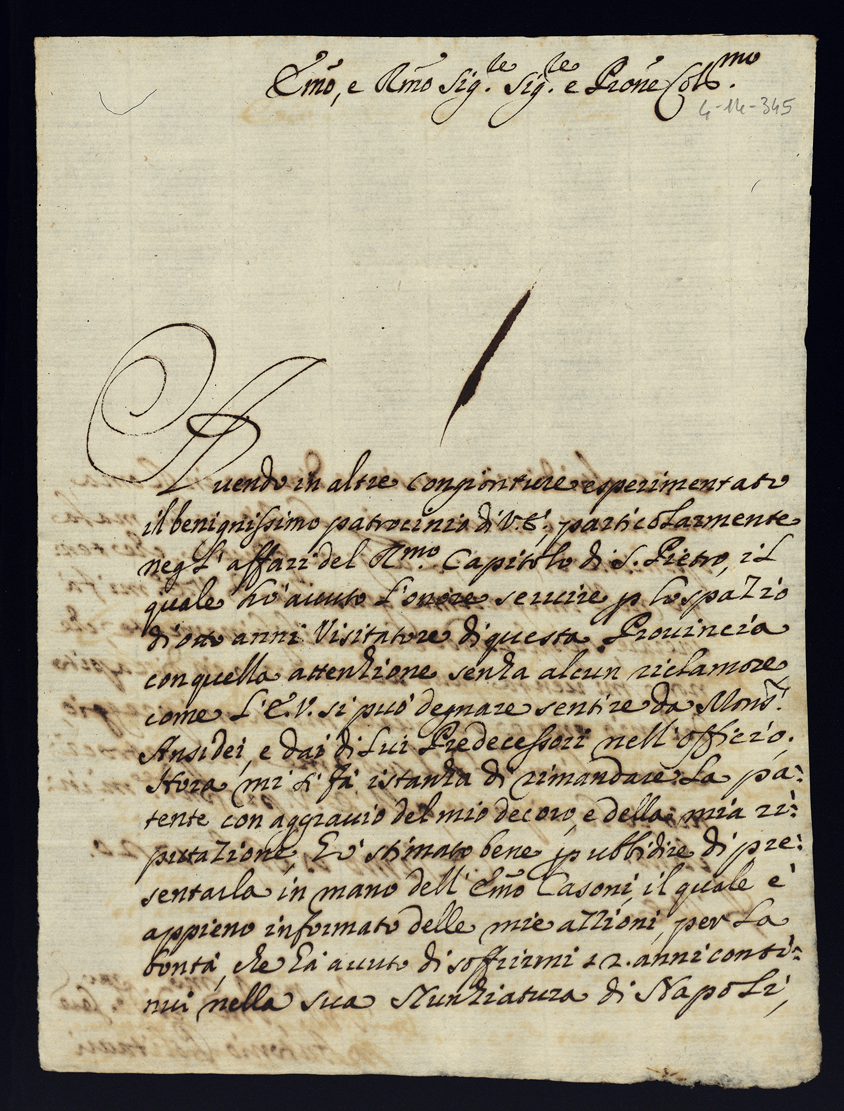 Emo, e Rmo Sig.re Sig.re e Prone Coll.mo
4-14-345
Auendo in altre congionture esperimentato
il benignissimo patrocinio di V.E. particolarmente
negl'affari del Rmo. Capitolo di S. Pietro, il
quale hò auuto l'onore seruire p lo spazio
di otto anni Visitatore di questa Prouincia
con quella attenzione senza alcun riclamore
come l'E.V. si può degnare sentire da Mons.r
Ansidei, e dai di lui Predecessori nell'officio.
Hora mi si fà istanza di rimandare la pa:
tente con aggrauio del mio decoro e della mia ri:
putazione, hò stimato bene p ubbidire di pre:
sentarla in mano dell'Emo Casoni, il quale è
appieno informato delle mie azzioni, per la
bontà, che hà auuto di soffrirmi 12. anni conti:
nui nella sua Nunziatura di Napoli,